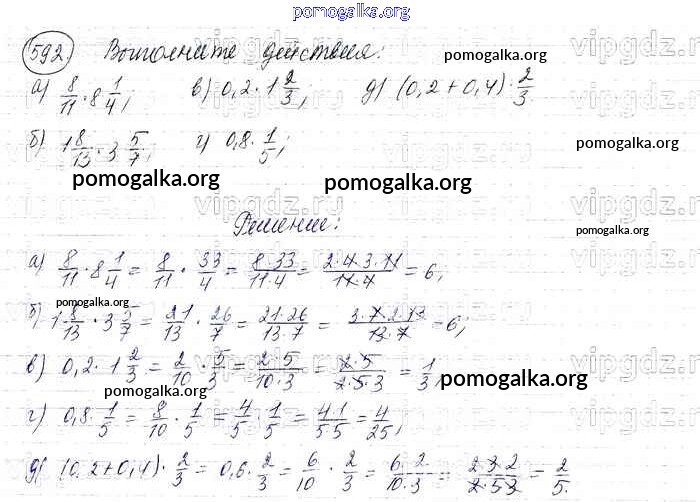 pomogalka.org
592. Выполните действия: pomogalka.org vipgdz.ru
а) 8/11 · 8 1/4; в) 0,2 · 1 2/3; д) (0,2 + 0,4) · 2/3
б) 1 8/13 · 3 5/7; г) 0,8 · 1/5; pomogalka.org
pomogalka.org pomogalka.org vipgdz.ru
Решение: pomogalka.org
а) 8/11 · 8 1/4 = 8/11 · 33/4 = 8·33/11·4 = 2·4·3·11/11·4 = 6;
pomogalka.org
б) 1 8/13 · 3 5/7 = 21/13 · 26/7 = 21·26/13·7 = 3·7·2·13/13·7 = 6;
в) 0,2 · 1 2/3 = 2/10 · 5/3 = 2·5/10·3 = 2·5/2·5·3 = 1/3; pomogalka.org
pomogalka.org
г) 0,8 · 1/5 = 8/10 · 1/5 = 4/5 · 1/5 = 4·1/5·5 = 4/25;
д) (0,2+0,4) · 2/3 = 0,6 · 2/3 = 6/10 · 2/3 = 6·2/10·3 = 2·3·2/2·5·3 = 2/5
pomogalka.org